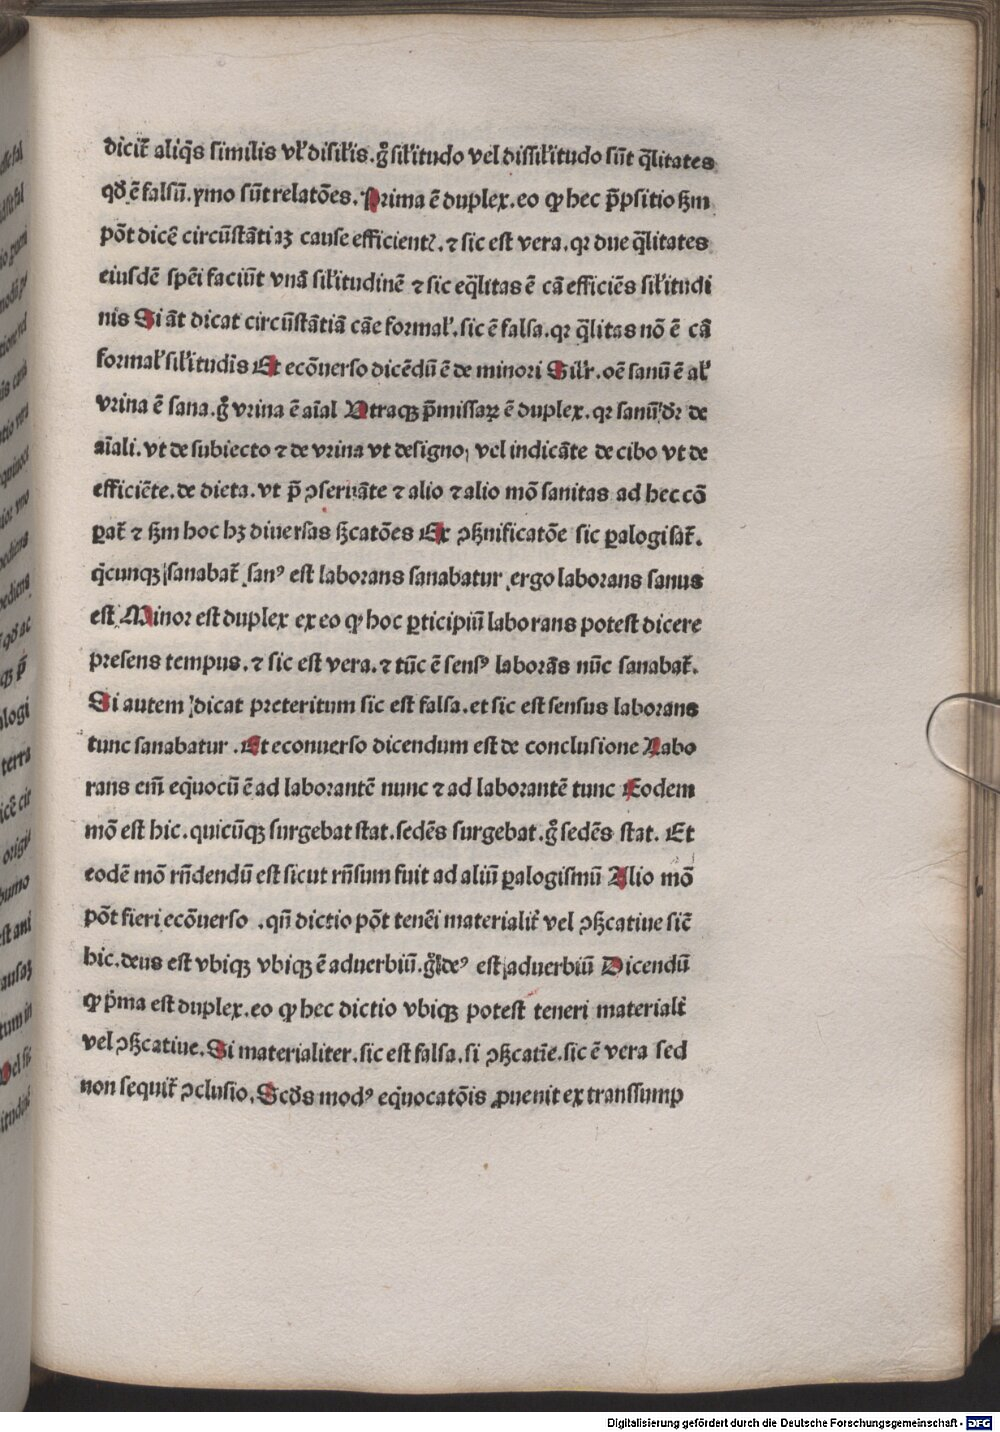 dicit᷑ aliq̄s similis vl̕ disil̕is. gͦ sil̕itudo vel dissil̕itudo sūt q̄litates
qđ ē falsū. ymo sūt relatōes. Prima ē duplex. eo ꝙ hec p̄positio ẜm
pōt dicē circūstātiaꝫ cause efficient. ⁊ sic est vera. qꝛ due q̄litates
eiusdē spēi faciūt vnā sil̕itudinē ⁊ sic eq̄litas ē cā efficiēs sil̕itudi
nis Si āt dicat circūstātiā cāe formal̕. sic ē falsa. qꝛ q̄litas nō ē cā
formal̕ sil̕itudīs Et ecōuerso dicēdū ē de minori Sil̕r. oē sanū ē al̕
vrina ē sana. gͦ vrina ē aīal Vtraqꝫ p̄missaꝝ ē duplex. qꝛ sanū dr̄ de
aīali. vt de subiecto ⁊ de vrina vt de signo, vel indicāte de cibo vt de
efficiēte. de dieta. vt p̄ ꝯseruāte ⁊ alio ⁊ alio mō sanitas ad hec cō
ꝑat᷑ ⁊ ẜm hoc hꝫ diuersas ẜcatōes Ex ꝯẜnificatōe sic ꝑalogisat᷑.
q̄cunqꝫ sanabat᷑ sanꝰ est laborans sanabatur ergo laborans sanus
est Minor est duplex ex eo ꝙ hoc ꝑticipiū laborans potest dicere
presens tempus. ⁊ sic est vera. ⁊ tūc ē sensꝰ laborās nūc sanabat᷑.
Si autem dicat preteritum sic est falsa. et sic est sensus laborans
tunc sanabatur. Et econuerso dicendum est de conclusione Labo
rans em̄ eq̄uocū ē ad laborantē nunc ⁊ ad laborantē tunc Eodem
mō est hic. quicūqꝫ surgebat stat. sedēs surgebat. gͦ sedēs stat. Et
eodē mō rn̄dendū est sicut rn̄sum fuit ad aliū ꝑalogismū Alio mō
pōt fieri ecōuerso. qn̄ dictio pōt tenēi materialit᷑ vel ꝯẜcatiue sic̄
hic. deus est vbiqꝫ vbiqꝫ ē aduerbiū. gͦ deꝰ est aduerbiū Dicendū
ꝙ p̄ma est duplex. eo ꝙ hec dictio vbiqꝫ potest teneri materialit᷑
vel ꝯẜcatiue. Si materialiter. sic est falsa. si ꝯẜcatīe. sic ē vera sed
non sequit᷑ ꝯclusio. Scđs modꝰ eq̄uocatōis ꝓuenit ex transsump
Digitalisierung gefördert durch die Deutsche Forschungsgemeinschaft - DFG